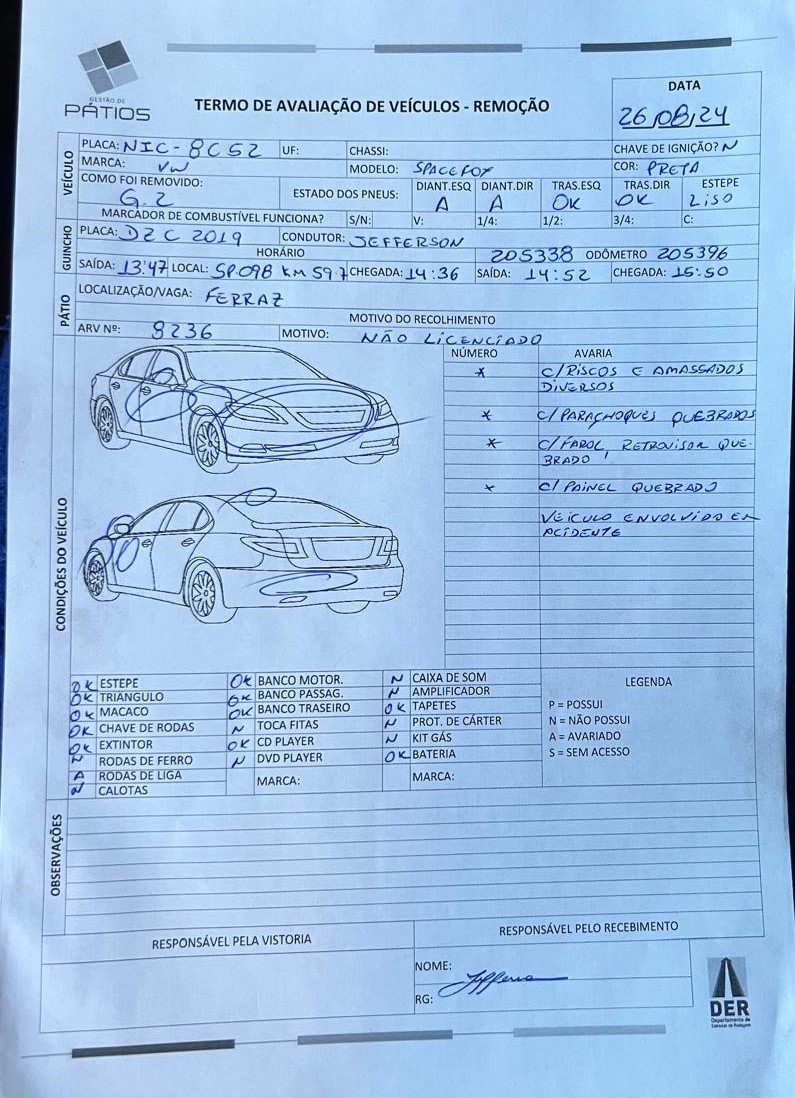 GESTÃO DE
PÁTIOS
TERMO DE AVALIAÇÃO DE VEÍCULOS - REMOÇÃO
DATA
26/08/24
VEÍCULO
PLACA: NIC-8C52 UF: CHASSI: CHAVE DE IGNIÇÃO? N
MARCA: VW MODELO: SPACEFOX COR: PRETA
COMO FOI REMOVIDO: G.2 ESTADO DOS PNEUS: DIANT.ESQ A DIANT.DIR A TRAS.ESQ OK TRAS.DIR OK ESTEPE LISO
MARCADOR DE COMBUSTÍVEL FUNCIONA? S/N: V: 1/4: 1/2: 3/4: C:
GUINCHO
PLACA: DZC 2019 CONDUTOR: JEFFERSON
HORÁRIO 205338 ODÔMETRO 205396
SAÍDA: 13:47 LOCAL: SP.098 KM 59.7 CHEGADA: 14:36 SAÍDA: 14:52 CHEGADA: 15:50
PÁTIO
LOCALIZAÇÃO/VAGA: FERRAZ
MOTIVO DO RECOLHIMENTO
ARV Nº: 8236 MOTIVO: NÃO LICENCIADO
CONDIÇÕES DO VEÍCULO
NÚMERO AVARIA
* C/RISCOS E AMASSADOS
DIVERSOS
* C/PARACHOQUES QUEBRADOS
* C/FAROL, RETROVISOR QUE-
BRADO
* C/ PAINEL QUEBRADO
VEICULO ENVOLVIDO EM
ACIDENTE
OK ESTEPE OK BANCO MOTOR. N CAIXA DE SOM
OK TRIANGULO OK BANCO PASSAG. N AMPLIFICADOR
OK MACACO OK BANCO TRASEIRO OK TAPETES
OK CHAVE DE RODAS N TOCA FITAS N PROT. DE CÁRTER
OK EXTINTOR OK CD PLAYER N KIT GÁS
N RODAS DE FERRO N DVD PLAYER OK BATERIA
A RODAS DE LIGA MARCA: MARCA:
N CALOTAS
LEGENDA
P = POSSUI
N = NÃO POSSUI
A = AVARIADO
S = SEM ACESSO
OBSERVAÇÕES
RESPONSÁVEL PELA VISTORIA RESPONSÁVEL PELO RECEBIMENTO
NOME:
RG:
DER
Departamento de
Estradas de Rodagem